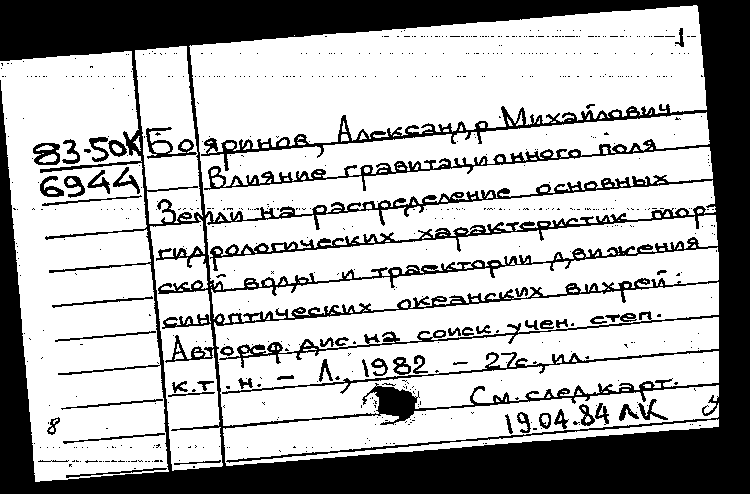 1
83-50К Бояринов, Александр Михайлович
6944 Влияние гравитационного поля
Земли на распределение основных
гидрологических характеристик мор-
ской воды и траектории движения
синоптических океанских вихрей:
Автореф. дис. на соиск. учен. степ.
к.т.н. – Л., 1982. – 27с., ил.
См. след. карт.
8 19.04.84 ЛК